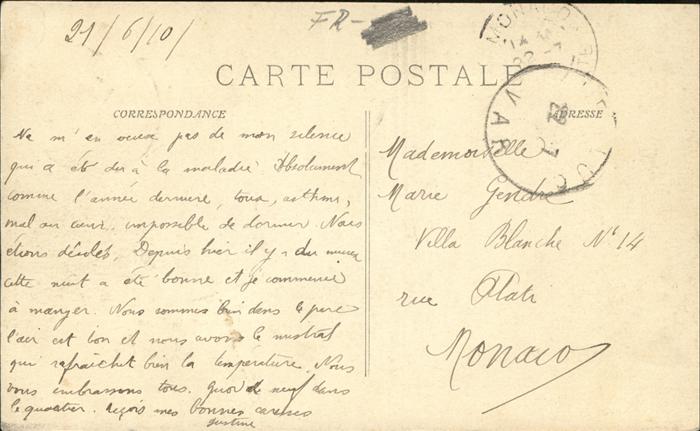 21/6/10/
FR-
MONACO
CARTE POSTALE
CORRESPONDANCE
ADRESSE
VAR
LUC
Ne m'en veux pas de mon silence
qui a été dû à la maladie Absolument
comme l'année dernière, toux, asthme,
mal au cœur, impossible de dormir Nous
étions désolés, Depuis hier il y a du mieux
cette nuit a été bonne et je commence
à manger. Nous sommes bien dans le parc
l'air est bon et nous avons le mistral
qui rafraîchit bien la température. Nous
vous embrassons tous. Quoi de neuf dans
le quartier. Reçois mes bonnes caresses
Justine
Mademoiselle
Marie Gendre
Villa Blanche N° 14
rue Plati
Monaco